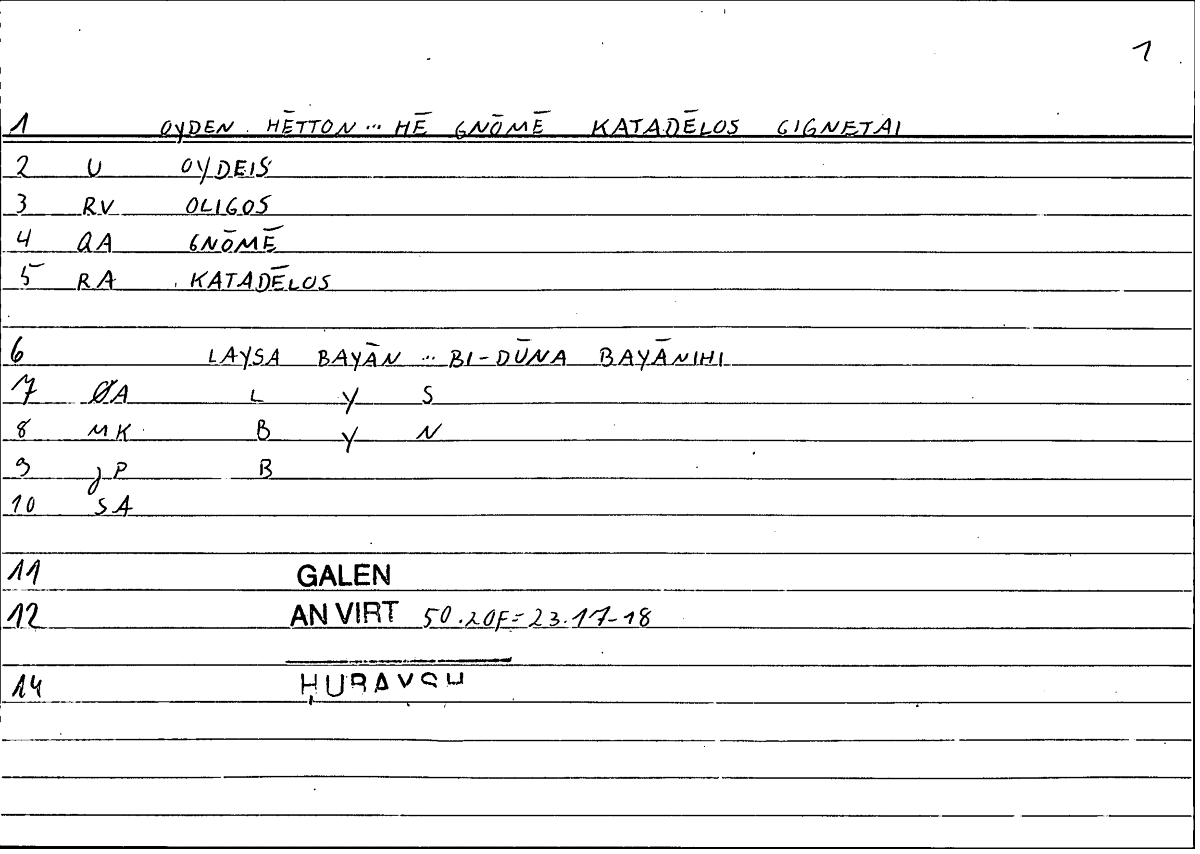 1
1 OYDEN HĒTTON ... HĒ GNŌMĒ KATADĒLOS GIGNETAI
2 U OYDEIS
3 RV OLIGOS
4 QA GNŌMĒ
5 RA KATADĒLOS
6 LAYSA BAYĀN ... BI-DŪNA BAYĀNIHI
7 ØA L Y S
8 MK B Y N
9 jP B
10 SA
11 GALEN
12 AN VIRT 50.20F=23.17-18
14 ḤUBAYSH